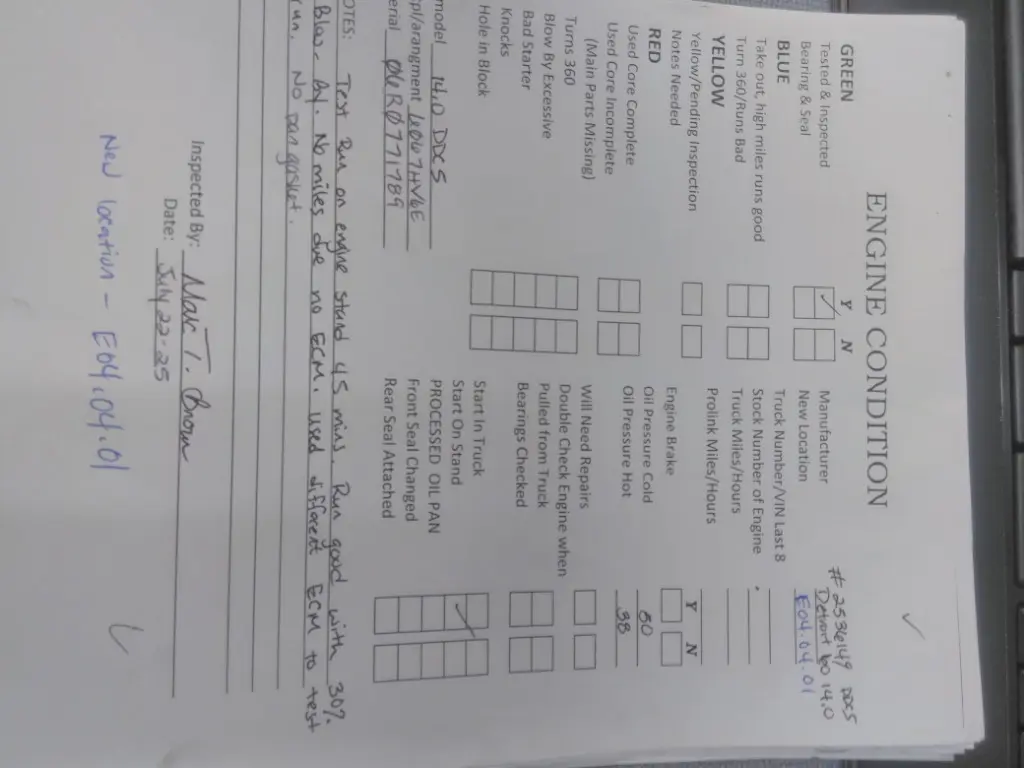 ENGINE CONDITION
# 2536149 DDCS
GREEN Y N Manufacturer Detroit 60 14.0
Tested & Inspected New Location E04.04.01
Bearing & Seal
Truck Number/VIN Last 8
BLUE Stock Number of Engine
Take out, high miles runs good Truck Miles/Hours
Turn 360/Runs Bad Prolink Mies/Hours
YELLOW Y N
Yellow/Pending Inspection Engine Brake
Notes Needed Oil Pressure Cold 50
RED Oil Pressure Hot 38
Used Core Complete
Used Core Incomplete Will Need Repairs
(Main Parts Missing) Double Check Engine when
Turns 360 Pulled from Truck
Blow By Excessive Bearings Checked
Bad Starter
Knocks Start In Truck
Hole in Block Start On Stand
PROCESSED OIL PAN
model 14.0 DDCS Front Seal Changed
pl/arangment 6067HV6E Rear Seal Attached
erial 06R0771789
OTES: Test Run on engine stand 45 mins. Run good with 30%
Blow-By. No miles due no ECM. used different ECM to test
run. No pan gasket.
Inspected By: Marc T. Brown
Date: July 22-25
New location - E04.04.01